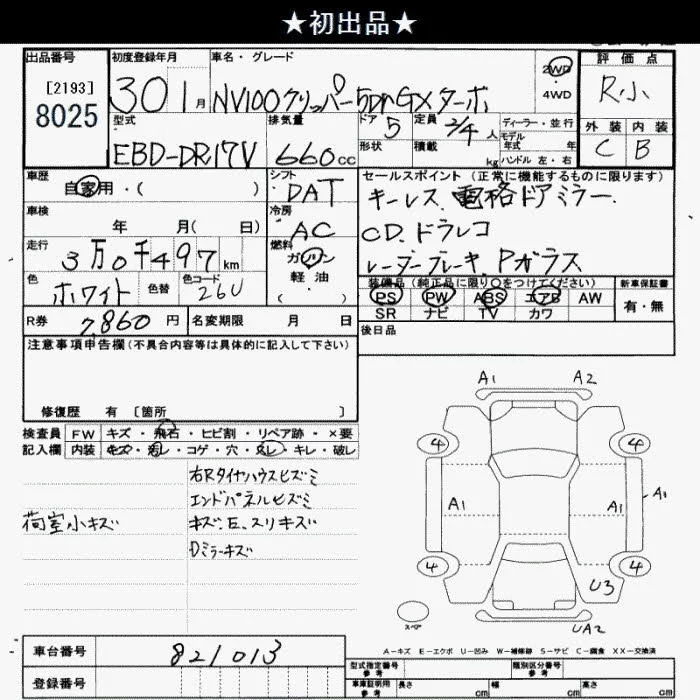 ★初出品★
出品番号
[2193]
8025
初度登録年月
30 1月
車名・グレード
NV100クリッパー 5Dr GXターボ
2WD
・
4WD
評価点
R小
外装 内装
C B
型式
EBD-DR17V
排気量
660cc
ドア 5
形状
定員 2/4人
積載 kg
ディーラー・並行
モデル
年式 年
ハンドル 左・右
車歴
自家用・( )
シフト
DAT
セールスポイント(正常に機能するものに限ります)
キーレス、電格ドアミラー、
CD、ドラレコ
レーダーブレーキ、Pガラス
車検
年 月( 日)
冷房
AC
走行
3万0千497km
燃料
ガソリン
軽油
( )
色
ホワイト
色替
色コード
26U
装備品(純正品に限り○をつけてください)
PS PW ABS エアB AW
SR ナビ TV カワ
新車保証書
有・無
R券 7,860円
名変期限 月 日
後日品
注意事項申告欄(不具合内容等は具体的に記入して下さい)
修復歴 有 〔箇所 〕
検査員 FW キズ・飛石・ヒビ割・リペア跡・×要
記入欄 内装 キズ・汚レ・コゲ・穴・スレ・キレ・破レ
右Rタイヤハウスヒズミ
エンドパネルヒズミ
荷室小キズ
キズ、E、スリキズ
Dミラーキズ
A1 A2
4 4
A1 A1 A1
4 4
U3
スペア
UA2
A−キズ E−エクボ U−凹み W−補修跡 S−サビ C−腐食 XX−交換済
車台番号 821013
登録番号
型式指定番号
参考
類別区分番号
参考
車庫証明用
参考
長さ cm 幅 cm 高さ cm